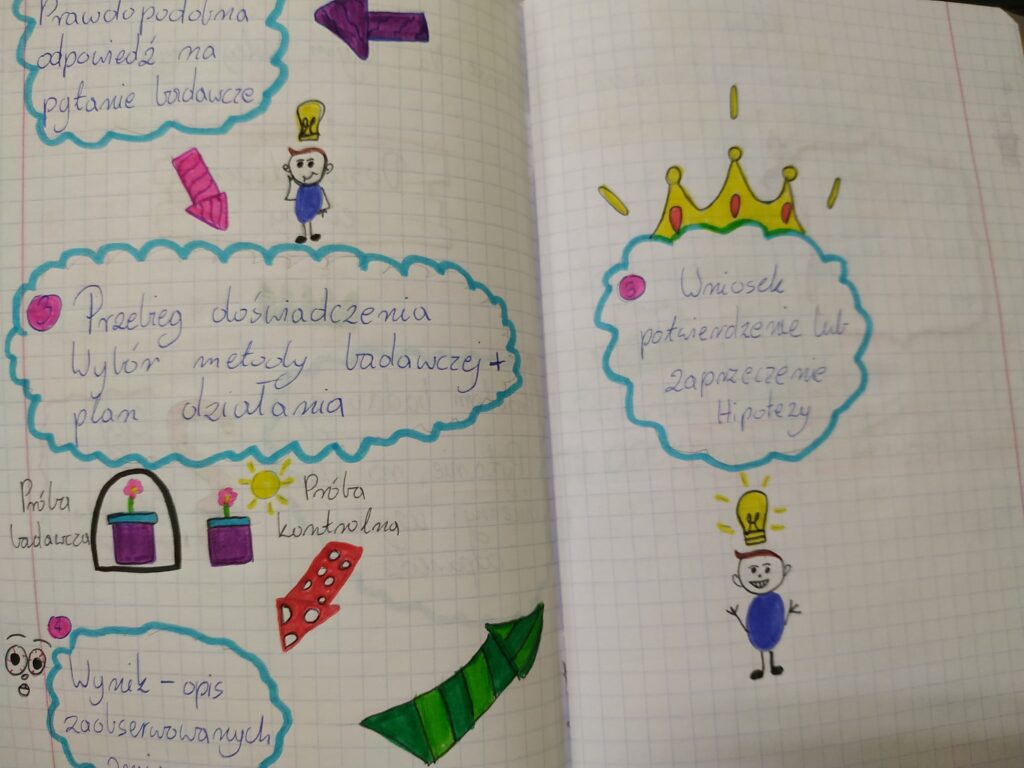 Prawdopodobna
odpowiedź na
pytanie badawcze
3
Przebieg doświadczenia
Wybór metody badawczej +
plan działania
Próba
badawcza
Próba
kontrolna
4
Wynik – opis
zaobserwowanych
5
Wniosek
potwierdzenie lub
zaprzeczenie
Hipotezy